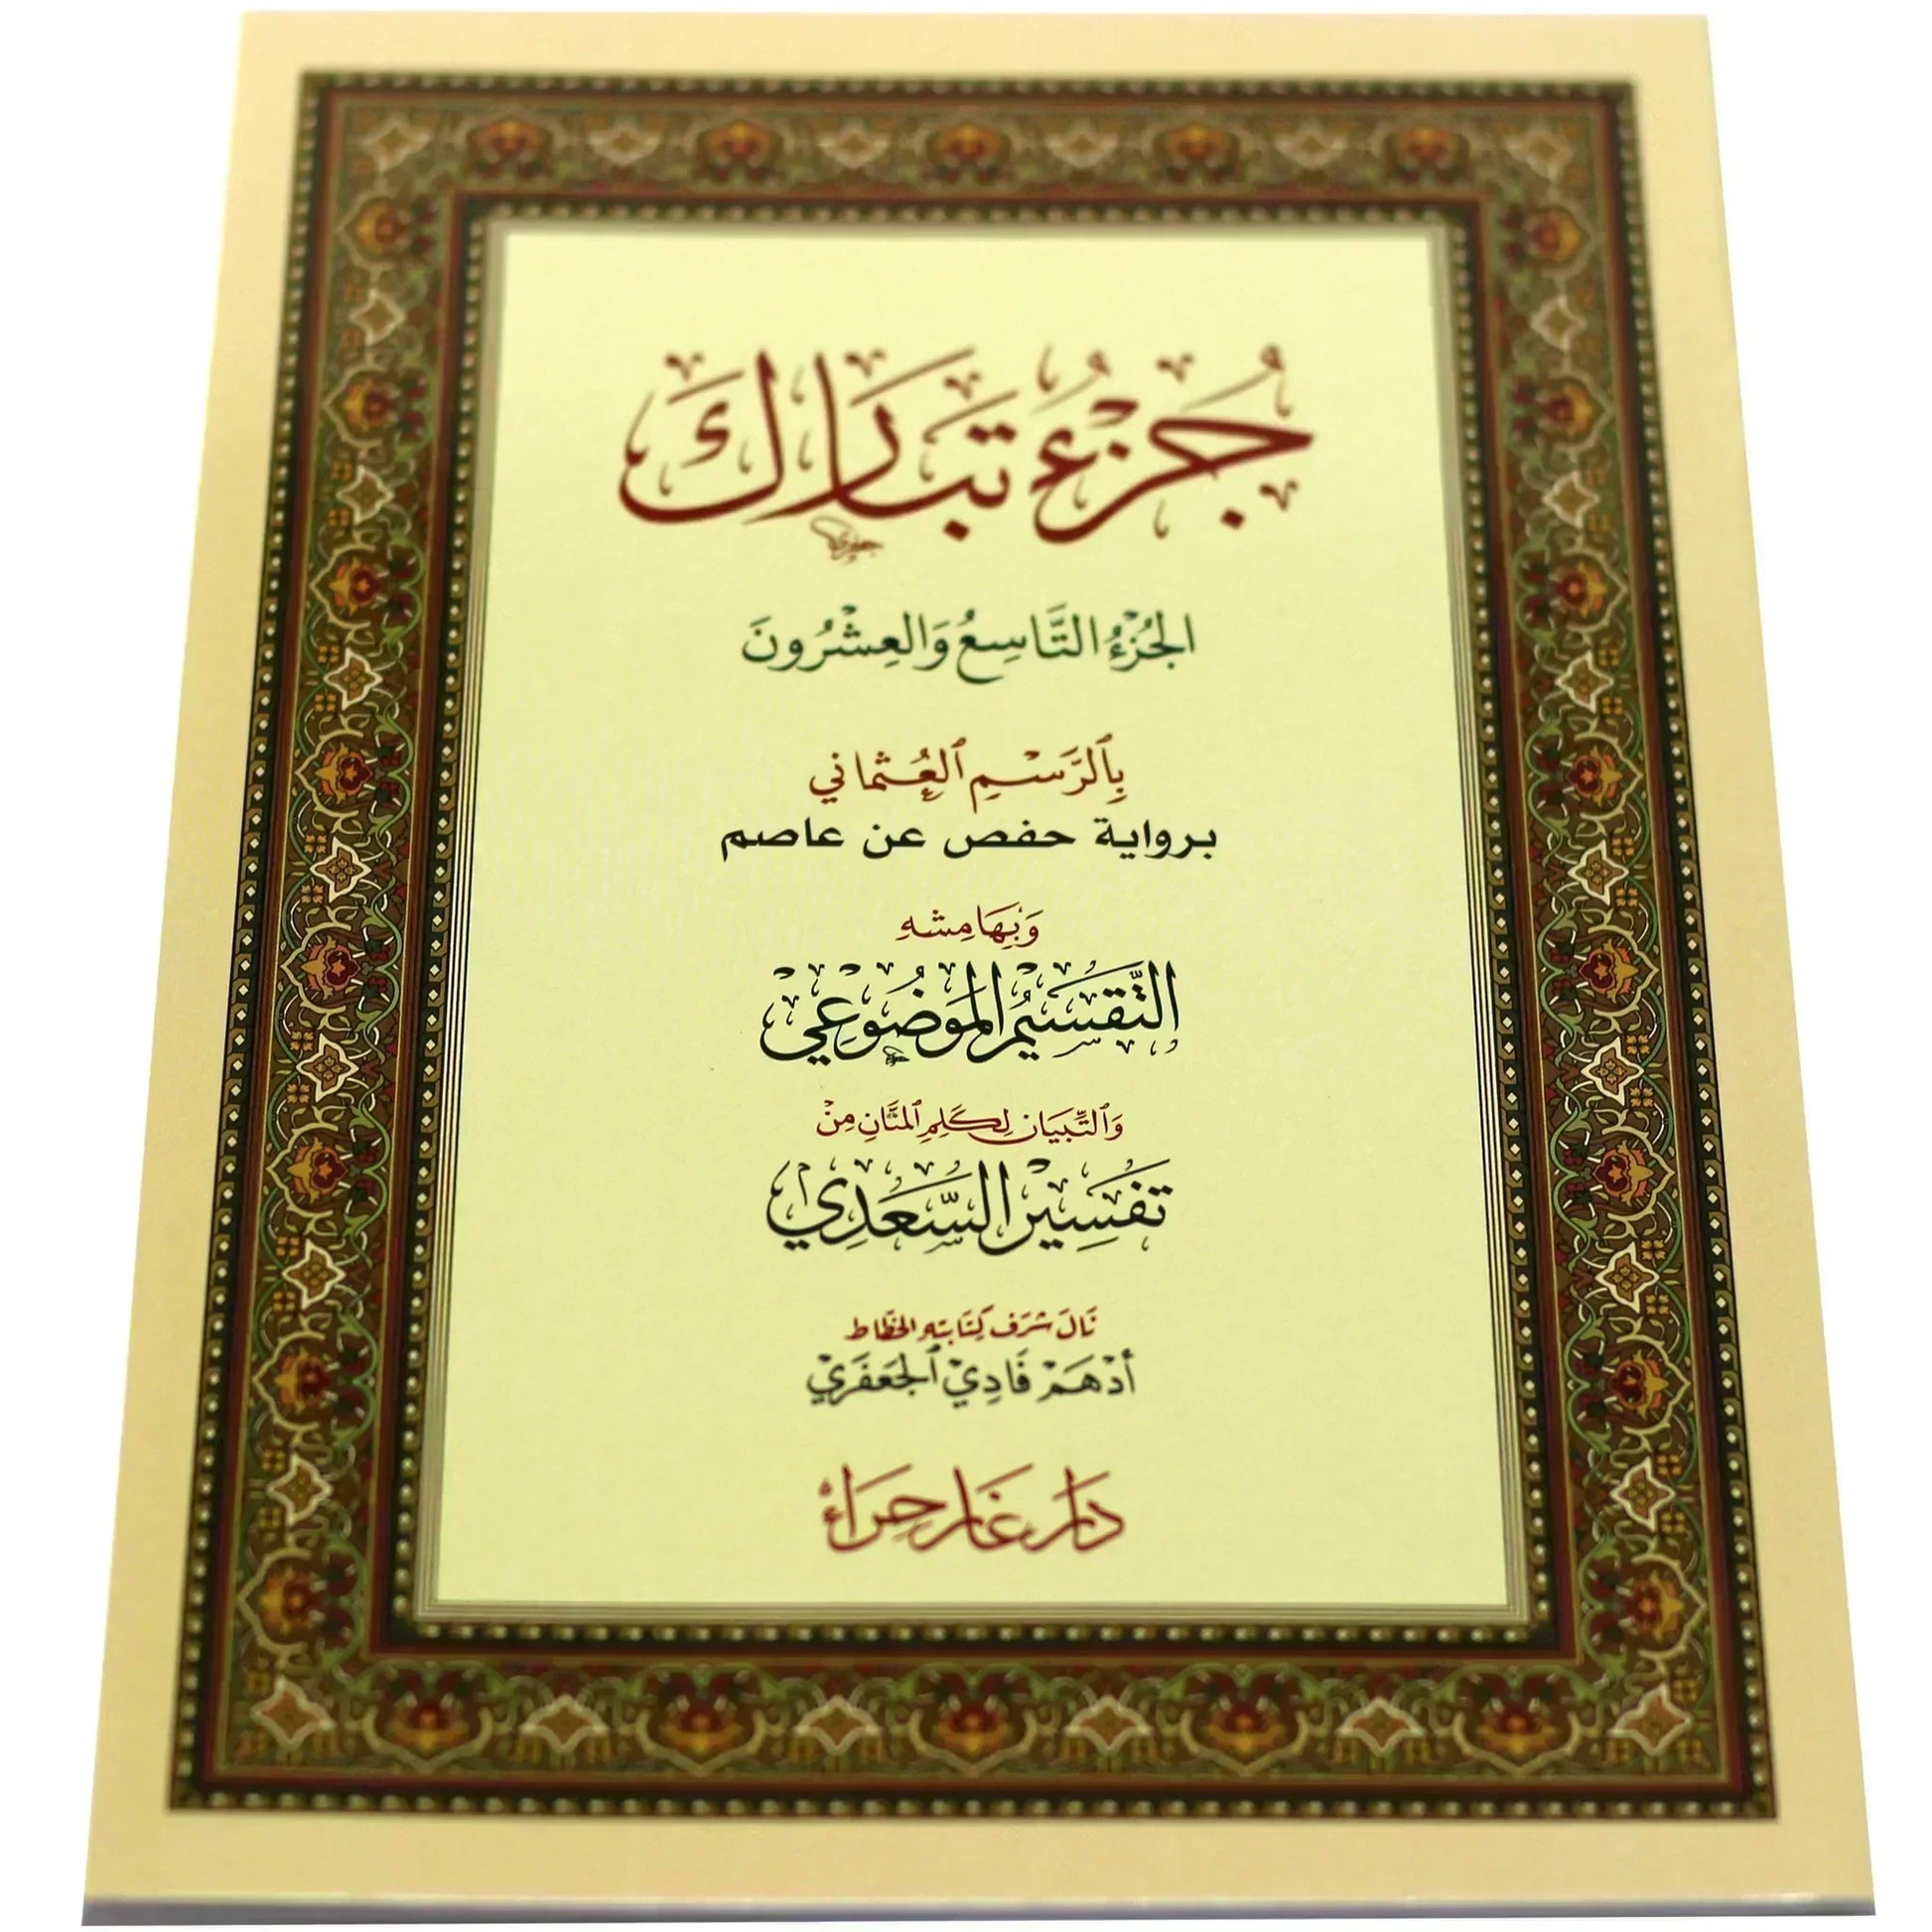 جُزْءُ تَبَارَكَ
الجُزْءُ التَّاسِعُ وَالعِشْرُونَ
بِٱلرَّسْمِ ٱلْعُثْمَانِي
برواية حفص عن عاصم
وَبِهَامِشِهِ
التَّقْسِيمُ المَوْضُوعِيْ
وَٱلتِّبْيَان لِكَلِمِ ٱلمَنَّانِ مِنْ
تَفْسِيْرِ السَّعْدِي
نَالَ شَرَف كِتَابَتِهِ الخَطَّاط
أَدْهَمْ فَادِيْ ٱلجَعْفَرِيْ
دَار غَار حِرَاء